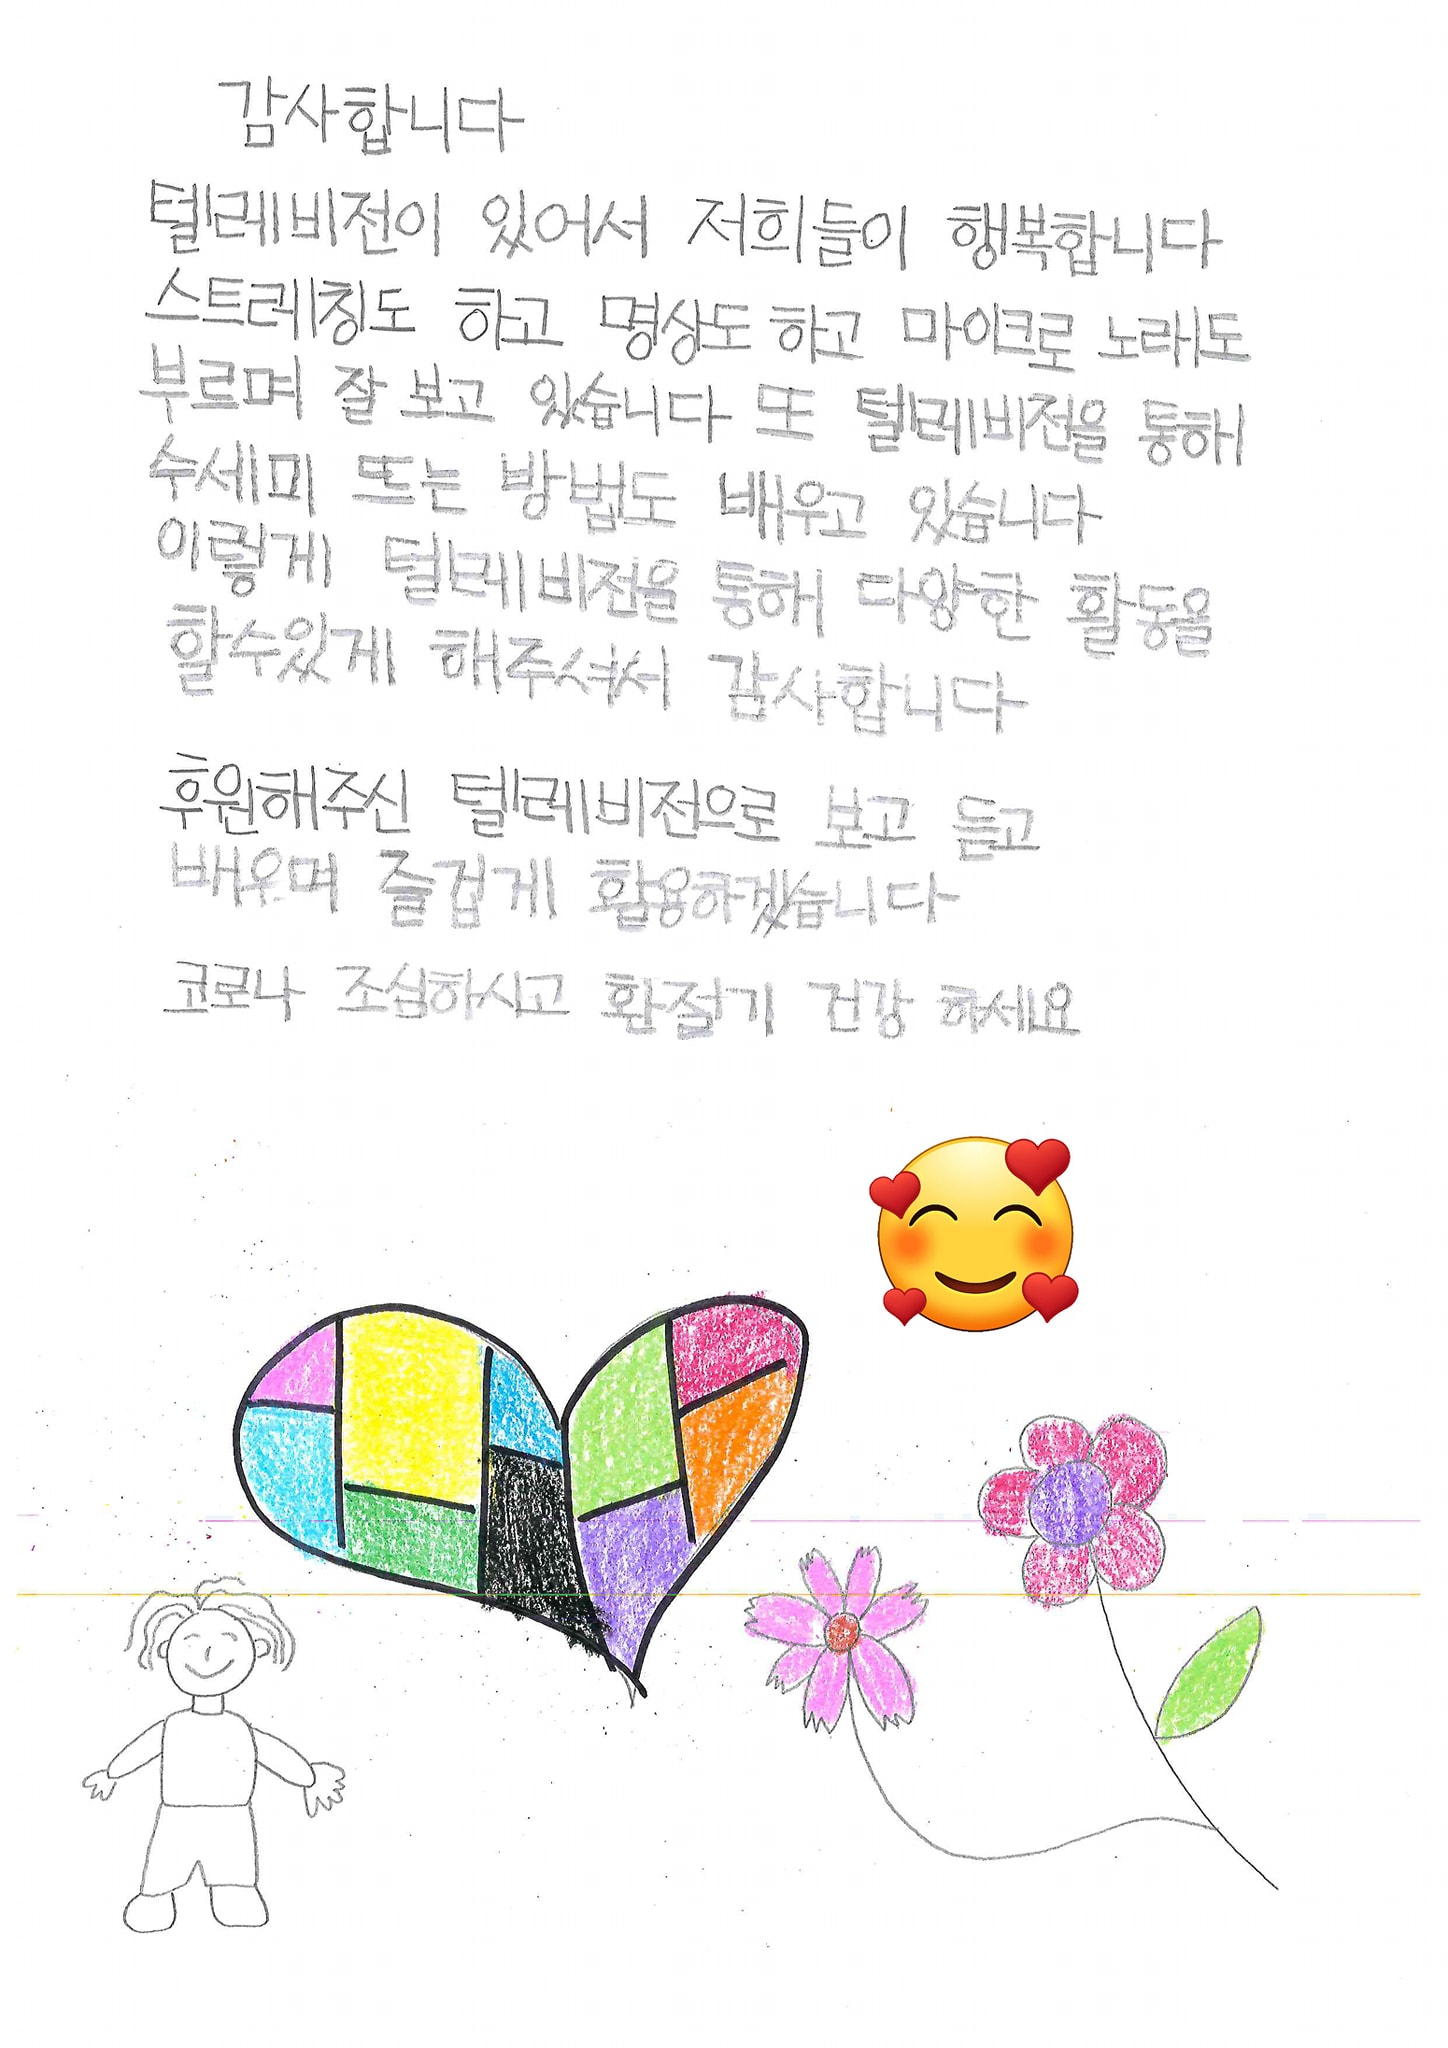 감사합니다
텔레비전이 있어서 저희들이 행복합니다
스트레칭도 하고 명상도 하고 마이크로 노래도
부르며 잘 보고 있습니다 또 텔레비전을 통해
수세미 뜨는 방법도 배우고 있습니다
이렇게 텔레비전을 통해 다양한 활동을
할수있게 해주셔서 감사합니다
후원해주신 텔레비전으로 보고 듣고
배우며 즐겁게 활용하겠습니다
코로나 조심하시고 환절기 건강 하세요